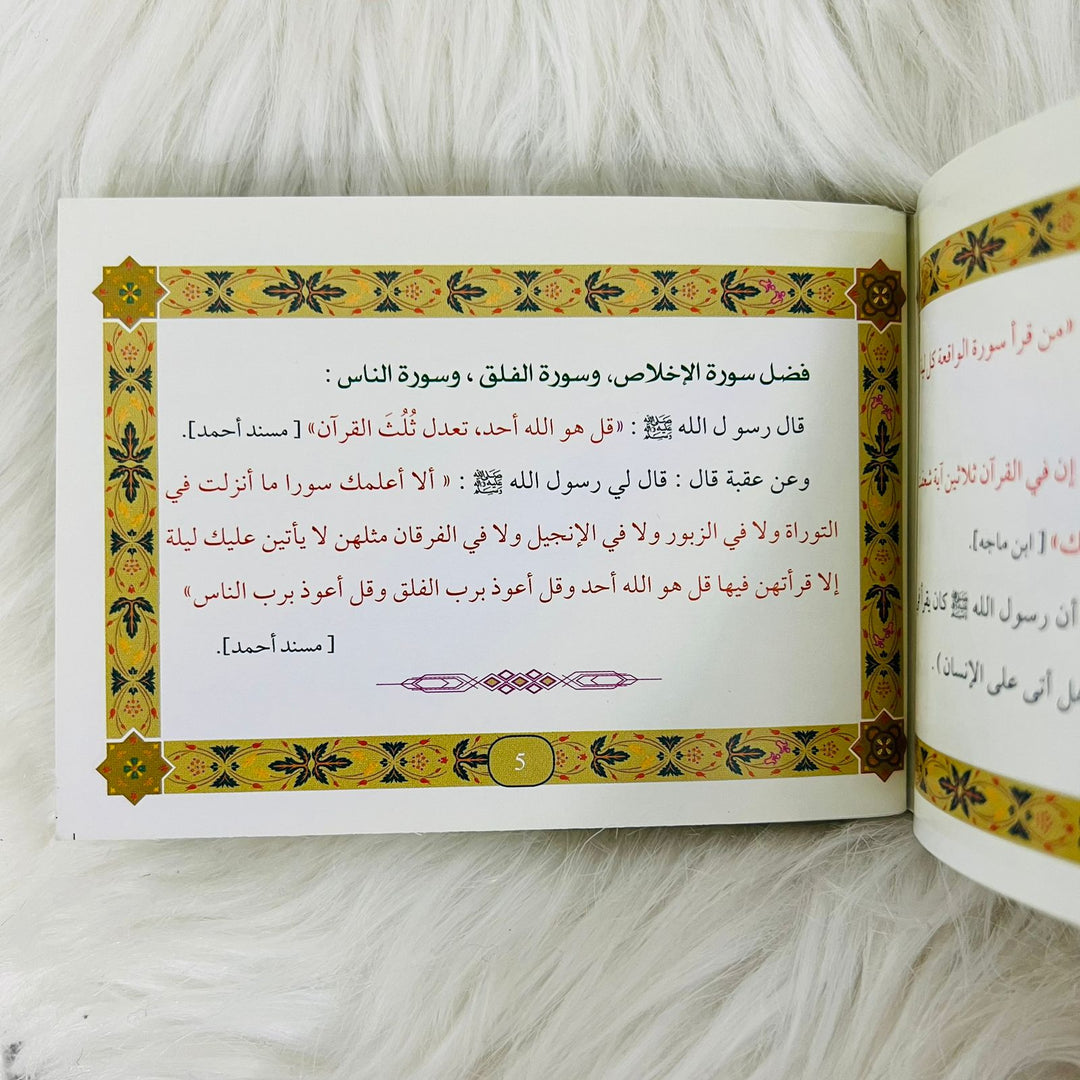 فضل سورة الإخلاص، وسورة الفلق ، وسورة الناس :
قال رسو ل الله ﷺ : «قل هو الله أحد، تعدل ثُلُثَ القرآن» [ مسند أحمد].
وعن عقبة قال : قال لي رسول الله ﷺ : « ألا أعلمك سورا ما أنزلت في
التوراة ولا في الزبور ولا في الإنجيل ولا في الفرقان مثلهن لا يأتين عليك ليلة
إلا قرأتهن فيها قل هو الله أحد وقل أعوذ برب الفلق وقل أعوذ برب الناس»
[ مسند أحمد].
5
«من قرأ سورة الواقعة كل
إن في القرآن ثلاثين آية
[ ابن ماجه].
أن رسول الله ﷺ كان
أتى على الإنسان) .